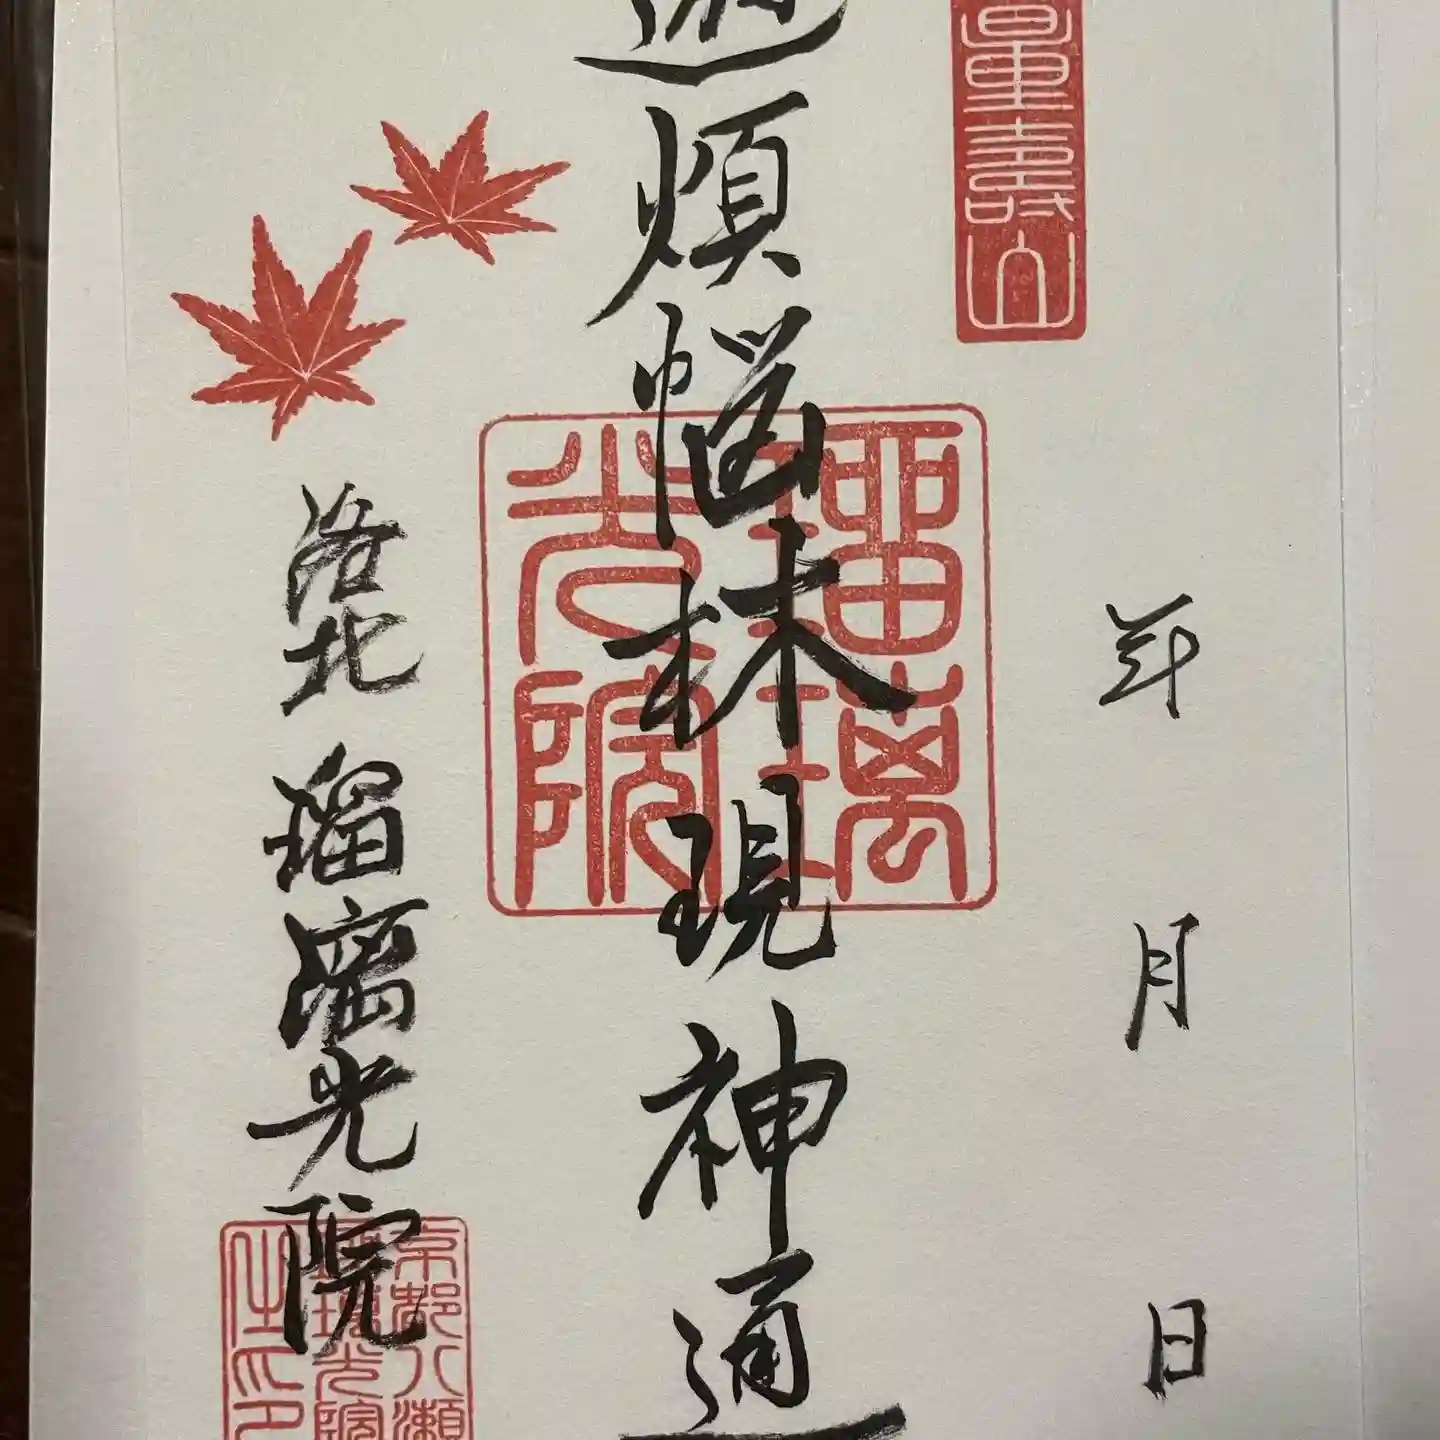 量壽山
年 月 日
遊煩悩林現神通
瑠璃光院
洛北 瑠璃光院
京都八瀬
瑠璃光院
主印